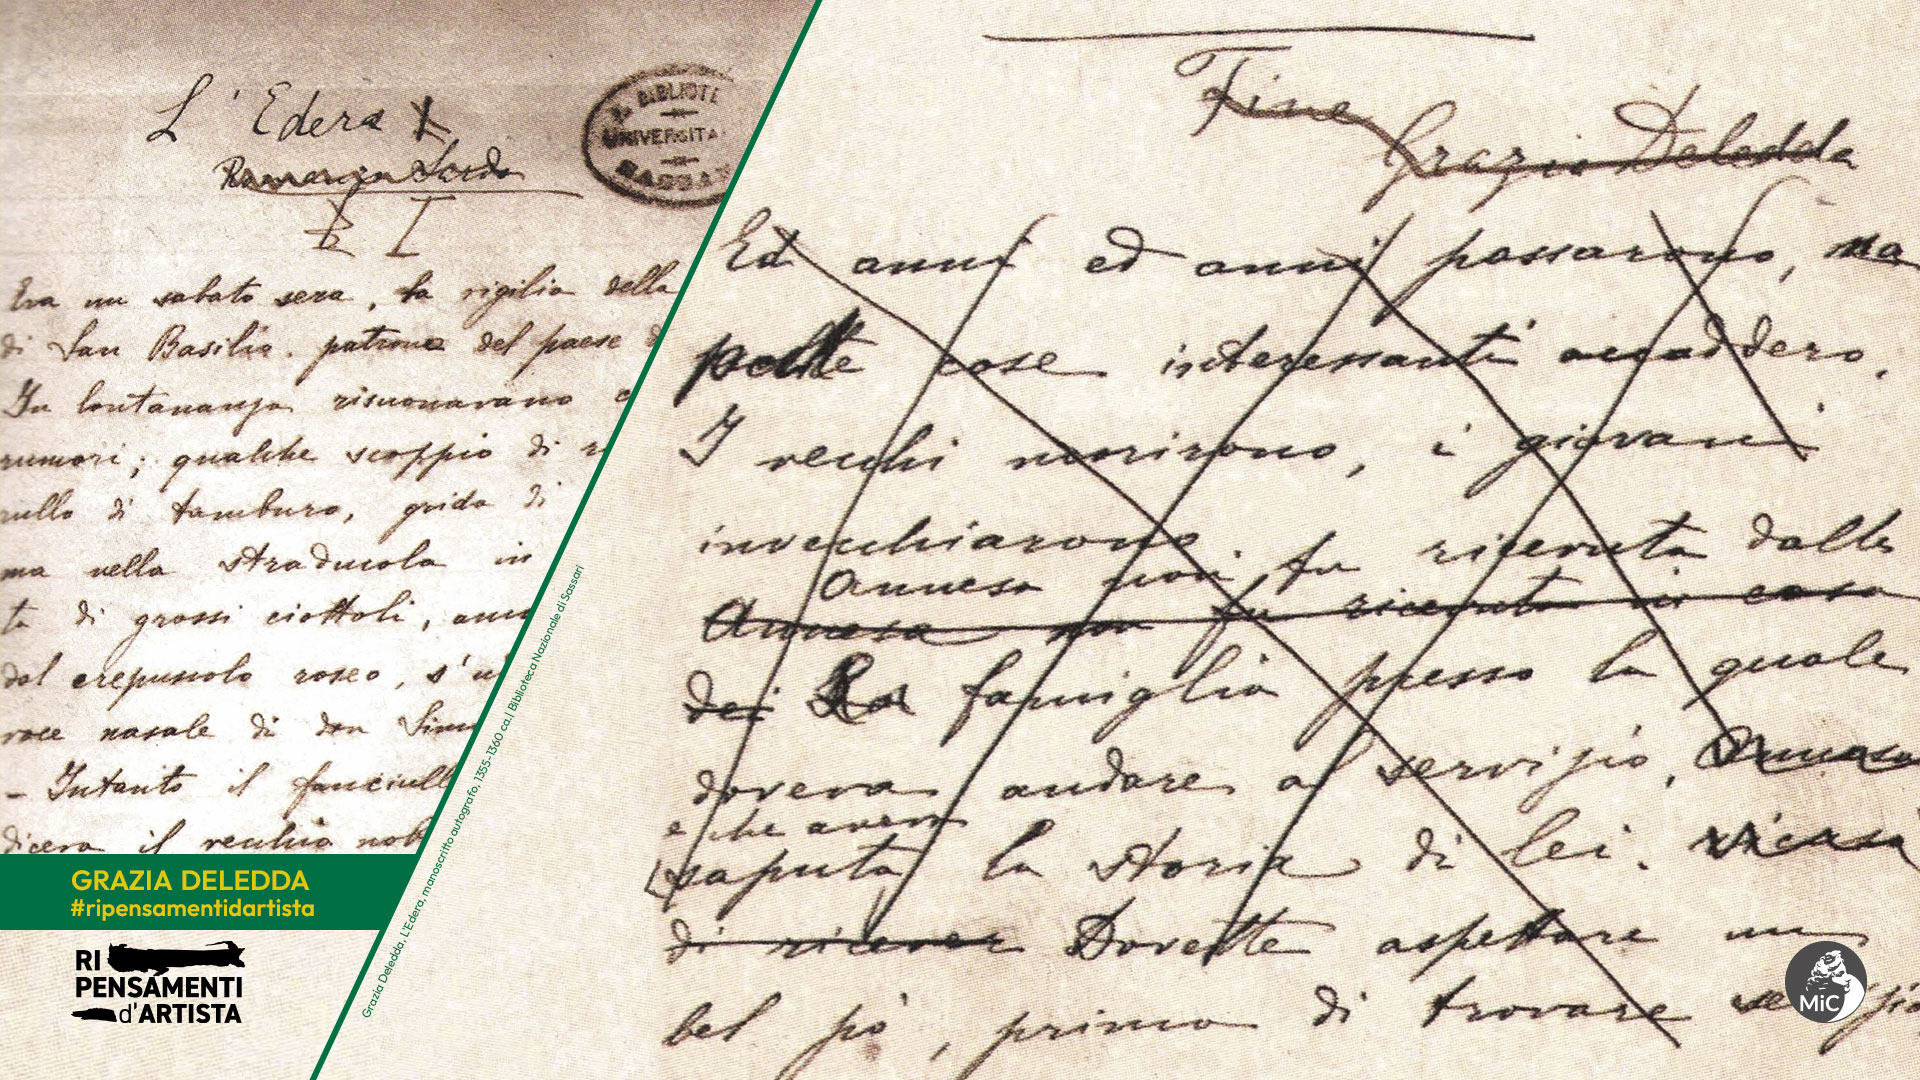 L'Edera
Romanzo Sardo
I
Era un sabato sera, la vigilia della
di San Basilio, patrono del paese d
In lontananza risuonavano c
rumori; qualche scoppio di r
rullo di tamburo, grida di
ma nella straducola in
ta di grossi ciottoli,
dal crepuscolo roseo, s'u
voce nasale di don Simo
- Intanto il fanciull
diceva il vecchio nob
R. BIBLIOTE
UNIVERSITA
SASSAR
Fine
Grazia Deledda
Ed anni ed anni passarono, ma
poche cose interessanti accaddero.
I vecchi morirono, i giovani
invecchiarono.
Annesa non fu ricevuta dalla
Annesa non fu ricevuta in casa
dei famiglia presso la quale
doveva andare al servizio. Annesa
e che aveva
saputa la storia di lei.
di ricever Dovette aspettare un
bel po', prima di trovare servizio
Grazia Deledda, L'Edera, manoscritto autografo, 1355-1360 ca. | Biblioteca Nazionale di Sassari
GRAZIA DELEDDA
#ripensamentidartista
RI
PENSAMENTI
d'ARTISTA
MiC